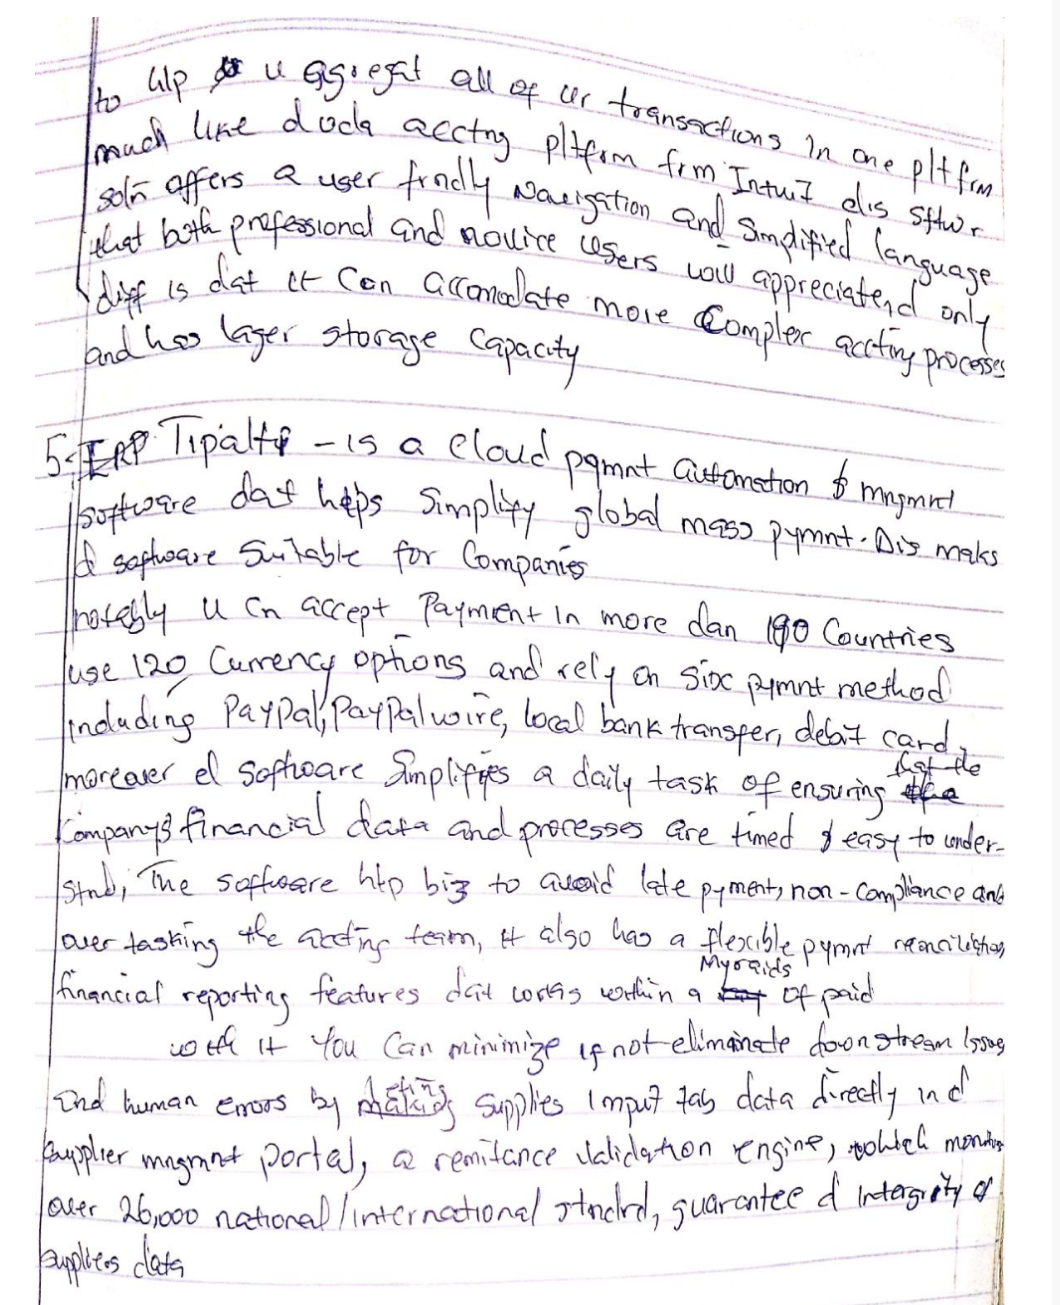 to hlp u aggregat all of ur transactions in one pltfrm
much like d odd acctng pltfrm frm Intuit dis sftwr
soln offers a user frndly navigation and simplified language
that both professional and novice users will appreciate, d only
diff is dat it can accomodate more complex acctng processes
and has lager storage capacity
5. Tipalti - is a cloud paymnt automation & mngmnt
software dat helps simplify global mass pymnt. Dis maks
d software suitable for companies
notably u cn accept payment in more dan 190 countries
use 120 currency options and rely on six pymnt method
including PayPal, PayPal wire, local bank transfer, debit card,
moreover d software simplifies a daily task of ensuring that the
company's financial data and processes are timed & easy to under-
stnd, The software hlp biz to avoid late pyment, non-compliance and
over tasking the acctng team, it also has a flexible pymnt reconciliation,
financial reporting features dat works within a Myraids of paid
with it you can minimize if not eliminate downstream issues
and human errors by supplies input tab data directly in d
supplier mngmnt portal, a remitance validation engine, which monitors
over 26,000 national/international stndrd, guarantee d intergrity of
suppliers data